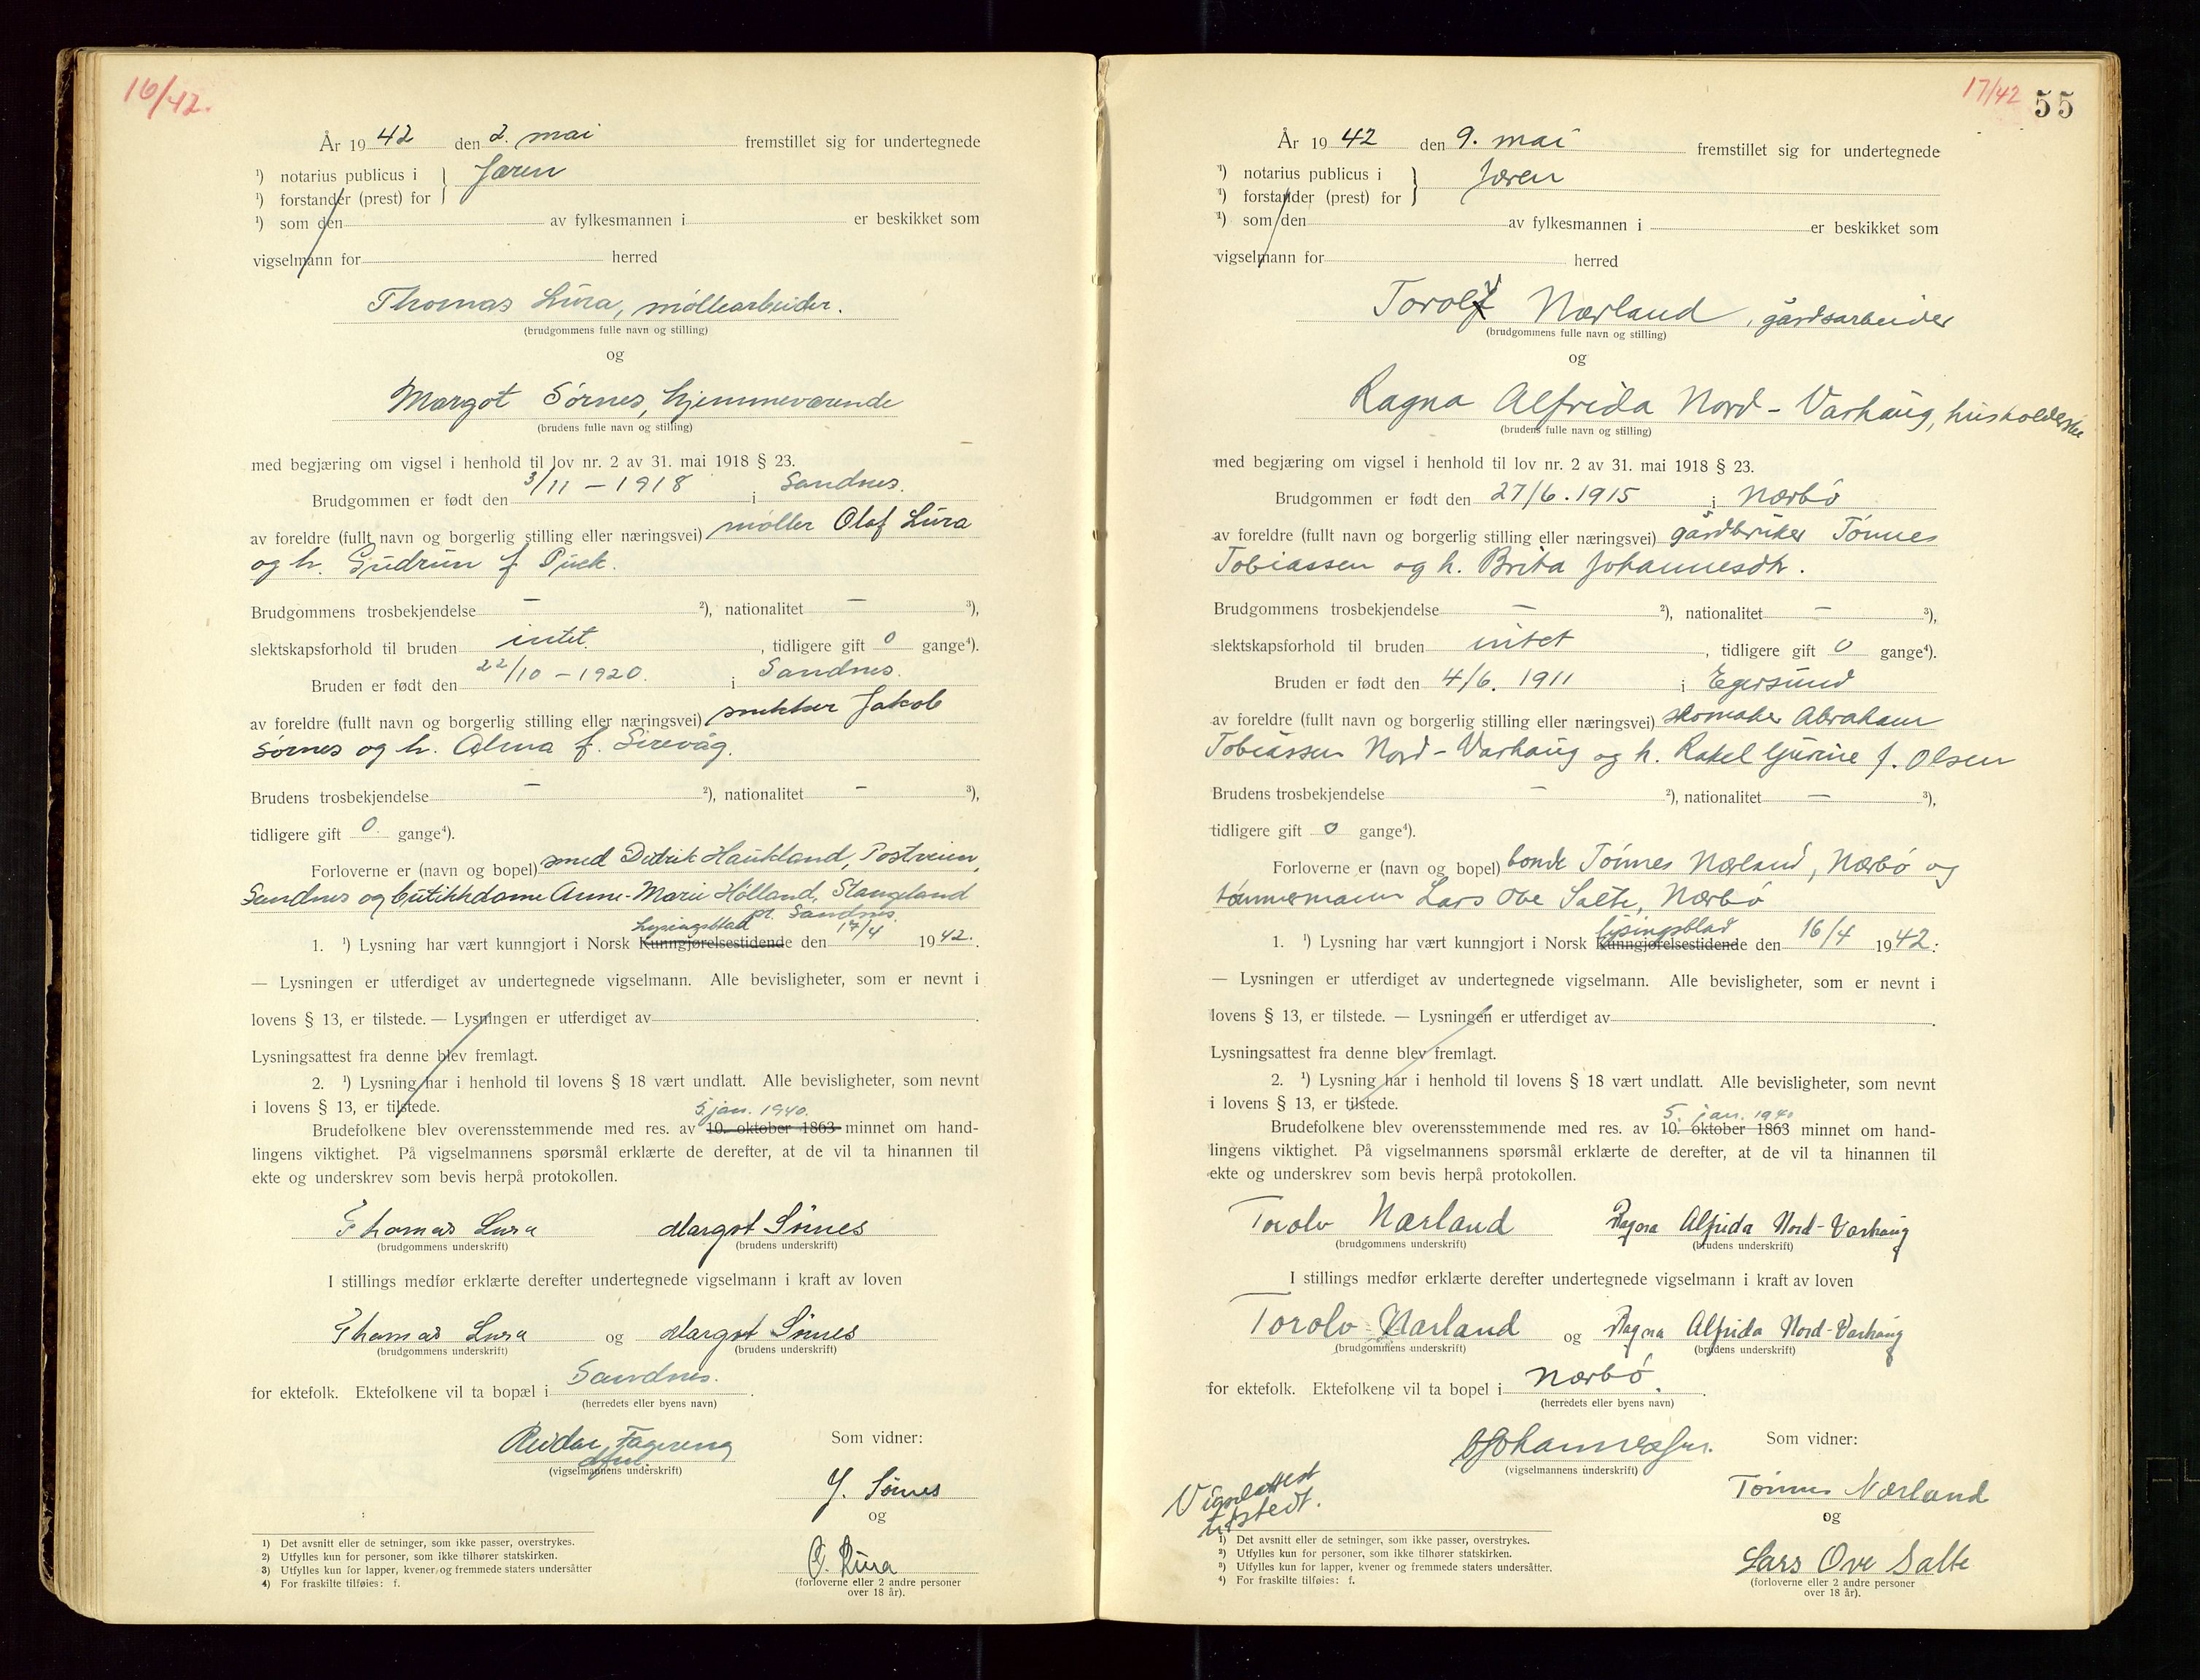 16/42.
År 1942 den 2. mai fremstillet sig for undertegnede
¹) notarius publicus i } Jæren
¹) forstander (prest) for
¹) som den av fylkesmannen i er beskikket som
vigselmann for herred
Thomas Lura, møllearbeider.
(brudgommens fulle navn og stilling)
og
Margot Sørnes, hjemmeværende
(brudens fulle navn og stilling)
med begjæring om vigsel i henhold til lov nr. 2 av 31. mai 1918 § 23.
Brudgommen er født den 3/11 - 1918 i Sandnes.
av foreldre (fullt navn og borgerlig stilling eller næringsvei) møller Olaf Lura
og h. Gudrun f. Puck.
Brudgommens trosbekjendelse — ²), nationalitet — ³),
slektskapsforhold til bruden intet. , tidligere gift 0 gange⁴).
Bruden er født den 22/10 - 1920. i Sandnes.
av foreldre (fullt navn og borgerlig stilling eller næringsvei) snekker Jakob
Sørnes og h. Alma f. Sirevåg.
Brudens trosbekjendelse — ²), nationalitet — ³),
tidligere gift 0. gange⁴).
Forloverne er (navn og bopel) smed Didrik Haukland, Postveien,
Sandnes og butikkdame Anne-Marie Hølland, Stangeland
pr. Sandnes.
Lysingsblad
1. ¹) Lysning har vært kunngjort i Norsk Kunngjørelsestidende den 17/4 1942.
— Lysningen er utferdiget av undertegnede vigselmann. Alle bevisligheter, som er nevnt i
lovens § 13, er tilstede. — Lysningen er utferdiget av .
Lysningsattest fra denne blev fremlagt.
2. ¹) Lysning har i henhold til lovens § 18 vært undlatt. Alle bevisligheter, som nevnt
i lovens § 13, er tilstede.
5. jan. 1940.
Brudefolkene blev overensstemmende med res. av 10. oktober 1863 minnet om hand-
lingens viktighet. På vigselmannens spørsmål erklærte de derefter, at de vil ta hinannen til
ekte og underskrev som bevis herpå protokollen.
Thomas Lura Margot Sörnes
(brudgommens underskrift) (brudens underskrift)
I stillings medfør erklærte derefter undertegnede vigselmann i kraft av loven
Thomas Lura og Margot Sörnes
(brudgommens underskrift) (brudens underskrift)
for ektefolk. Ektefolkene vil ta bopæl i Sandnes. .
(herredets eller byens navn)
Reidar Fagereng
dful.
(vigselmannens underskrift)
Som vidner:
J. Sörnes
og
O. Lura
(forloverne eller 2 andre personer
over 18 år).
1) Det avsnitt eller de setninger, som ikke passer, overstrykes.
2) Utfylles kun for personer, som ikke tilhører statskirken.
3) Utfylles kun for lapper, kvener og fremmede staters undersåtter
4) For fraskilte tilføies: f.
17/42 55
År 1942 den 9. mai fremstillet sig for undertegnede
¹) notarius publicus i } Jæren
¹) forstander (prest) for
¹) som den av fylkesmannen i er beskikket som
vigselmann for herred
Torolv Nærland, gårdsarbeider
(brudgommens fulle navn og stilling)
og
Ragna Alfrida Nord-Varhaug, husholderske
(brudens fulle navn og stilling)
med begjæring om vigsel i henhold til lov nr. 2 av 31. mai 1918 § 23.
Brudgommen er født den 27/6. 1915 i Nærbø
av foreldre (fullt navn og borgerlig stilling eller næringsvei) gårdbruker Tönnes
Tobiassen og h. Brita Johannesdtr.
Brudgommens trosbekjendelse — ²), nationalitet — ³),
slektskapsforhold til bruden intet , tidligere gift 0 gange⁴).
Bruden er født den 4/6. 1911 i Egersund
av foreldre (fullt navn og borgerlig stilling eller næringsvei) skomaker Abraham
Tobiassen Nord-Varhaug og h. Rakel Gurine f. Olsen
Brudens trosbekjendelse — ²), nationalitet — ³),
tidligere gift 0 gange⁴).
Forloverne er (navn og bopel) bonde Tönnes Nærland, Nærbø og
tømmermann Lars Ove Salte, Nærbø
lysingsblad
1. ¹) Lysning har vært kunngjort i Norsk Kunngjørelsestidende den 16/4 1942.
— Lysningen er utferdiget av undertegnede vigselmann. Alle bevisligheter, som er nevnt i
lovens § 13, er tilstede. — Lysningen er utferdiget av .
Lysningsattest fra denne blev fremlagt.
2. ¹) Lysning har i henhold til lovens § 18 vært undlatt. Alle bevisligheter, som nevnt
i lovens § 13, er tilstede.
5. jan. 1940
Brudefolkene blev overensstemmende med res. av 10. oktober 1863 minnet om hand-
lingens viktighet. På vigselmannens spørsmål erklærte de derefter, at de vil ta hinannen til
ekte og underskrev som bevis herpå protokollen.
Torolv Nærland Ragna Alfrida Nord-Varhaug
(brudgommens underskrift) (brudens underskrift)
I stillings medfør erklærte derefter undertegnede vigselmann i kraft av loven
Torolv Nærland og Ragna Alfrida Nord-Varhaug
(brudgommens underskrift) (brudens underskrift)
for ektefolk. Ektefolkene vil ta bopel i Nærbø. .
(herredets eller byens navn)
(vigselmannens underskrift)
Som vidner:
Vigselattest
utstedt.
Tönnes Nærland
og
Lars Ove Salte
(forloverne eller 2 andre personer
over 18 år).
¹) Det avsnitt eller de setninger, som ikke passer, overstrykes.
²) Utfylles kun for personer, som ikke tilhører statskirken.
³) Utfylles kun for lapper, kvener og fremmede staters undersåtter.
⁴) For fraskilte tilføies: f.